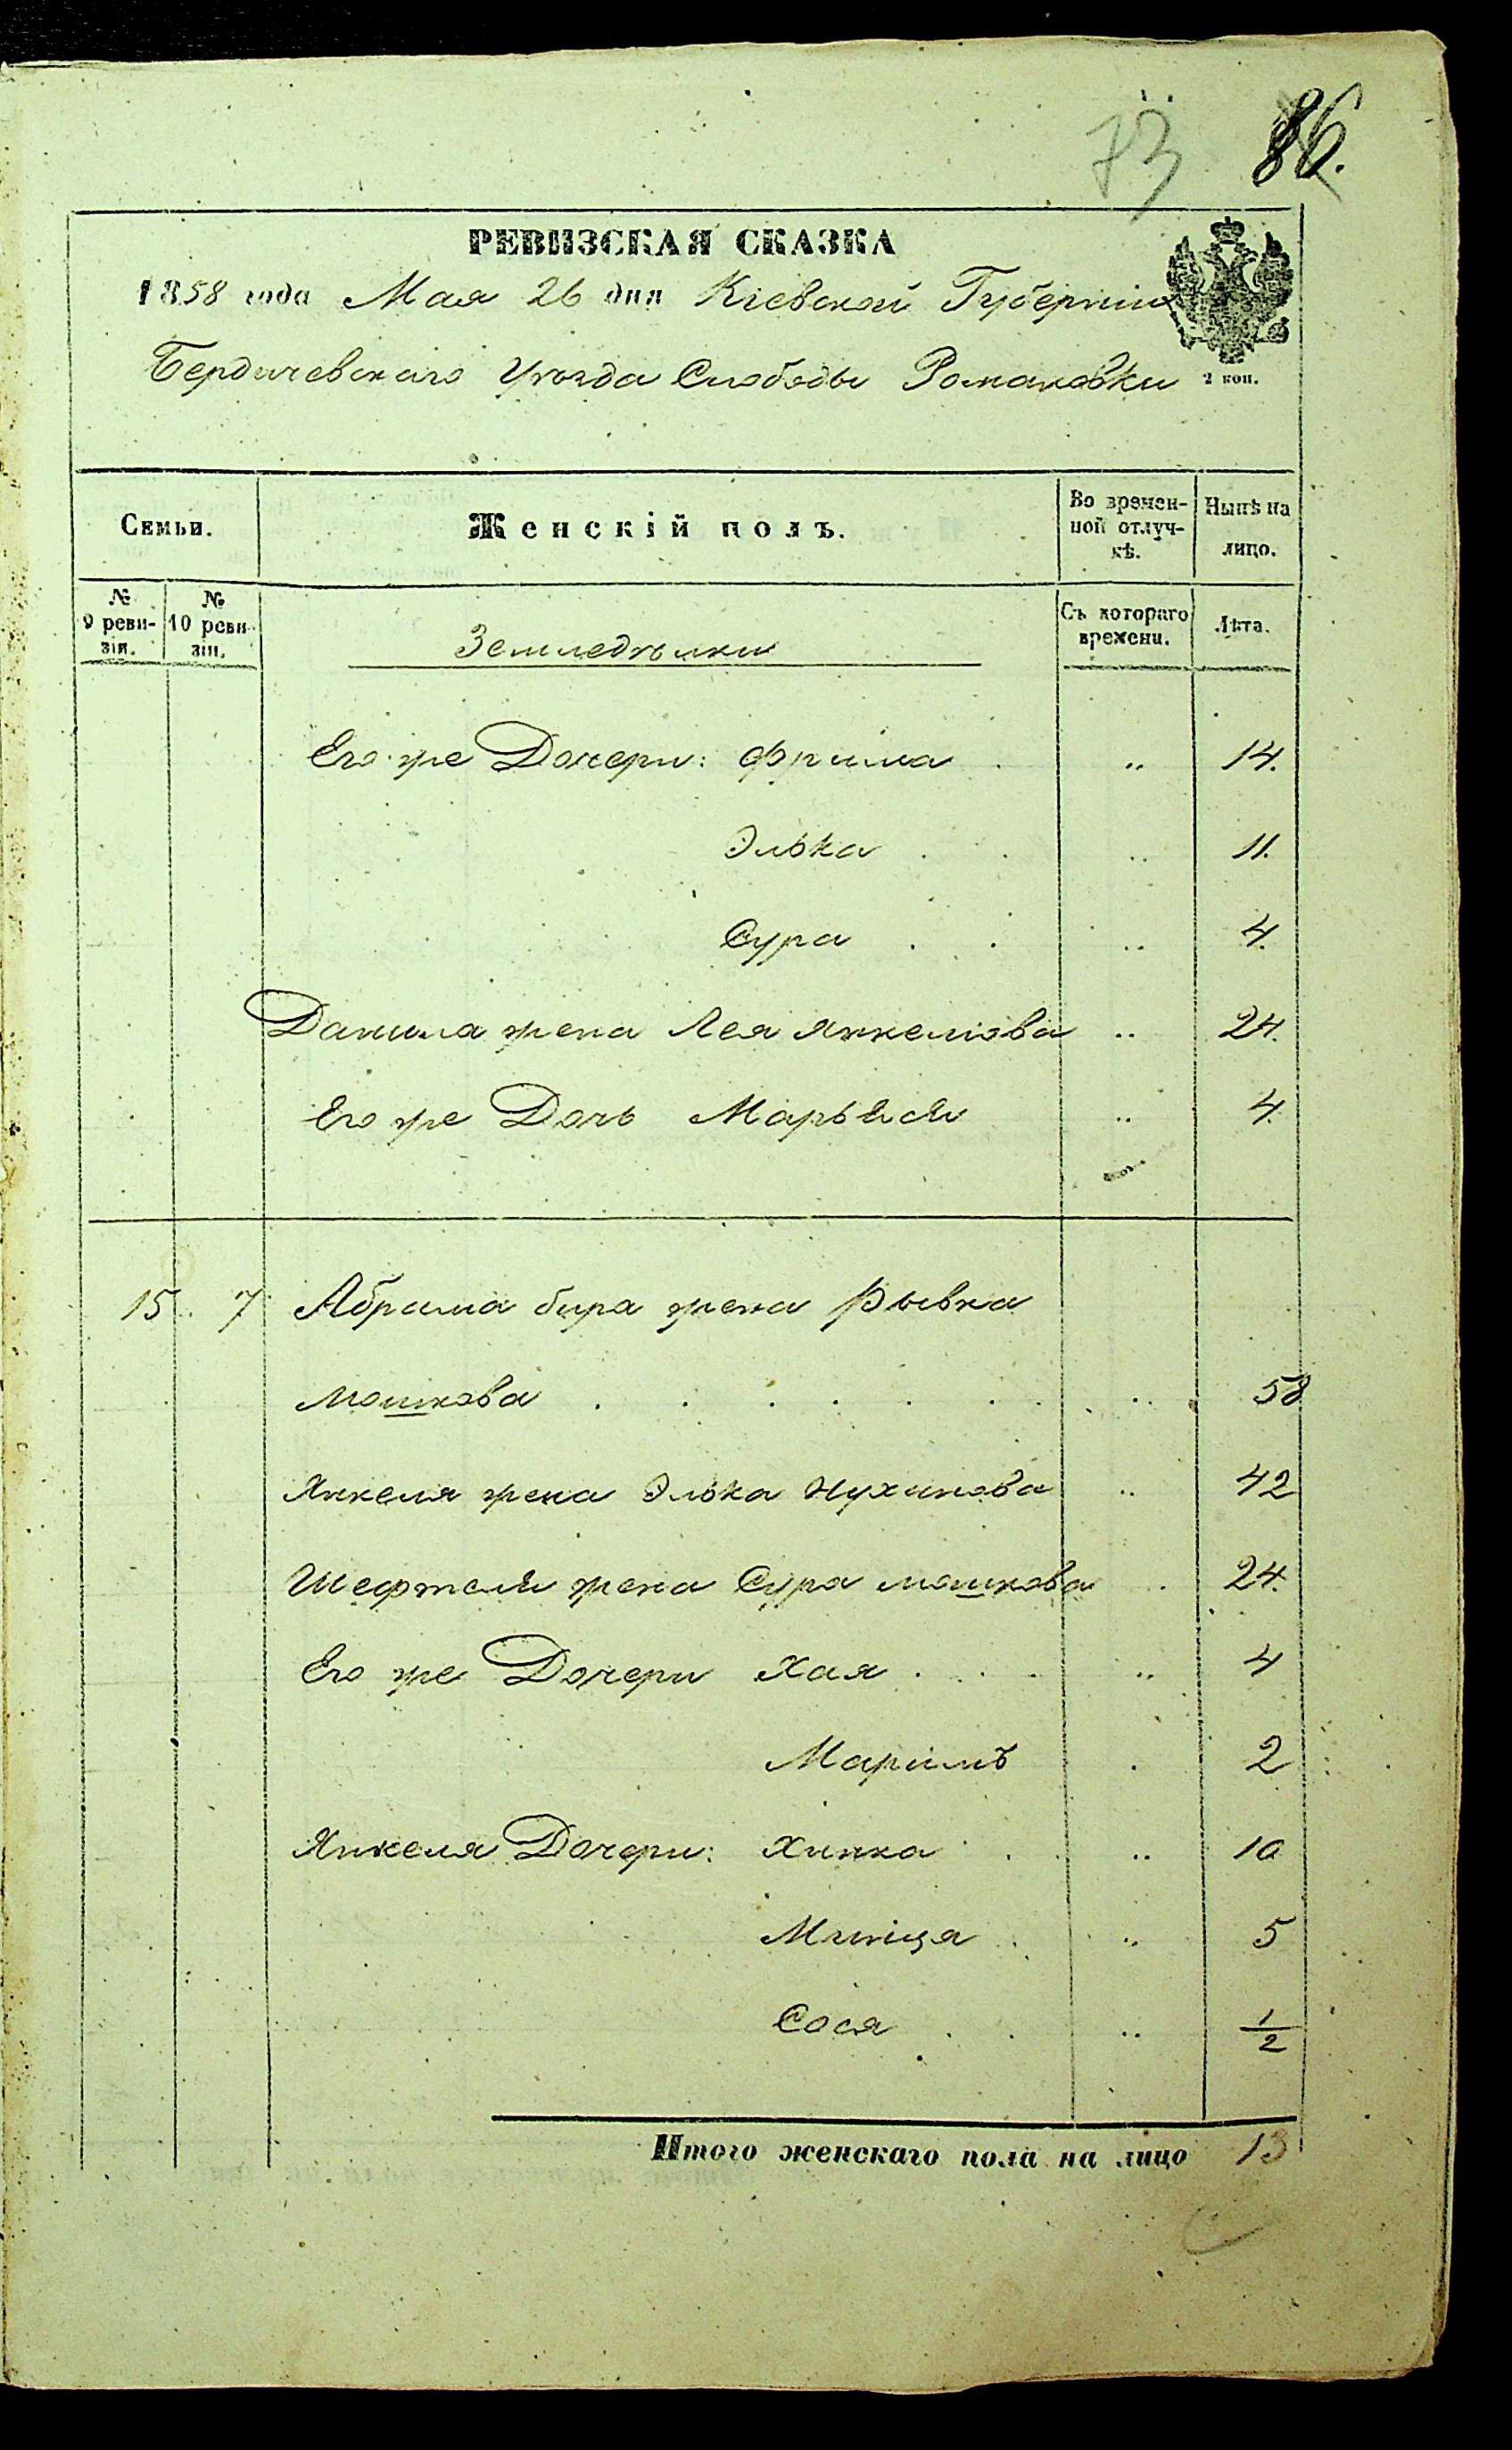 73 86.
РЕВИЗСКАЯ СКАЗКА
1858 года Мая 26 дня Кіевской Губерніи
Бердичевскаго Уѣзда Слободы Романовки
2 коп.
Семьи.
Женскій полъ.
Во времен-
ной отлуч-
кѣ.
Нынѣ на
лицо.
№
9 реви-
зіи.
№
10 реви-
зіи.
Земледѣльцы
Съ котораго
времени.
Лѣта.
Его же Дочери: Фрима . „ 14.
Элька . . „ 11.
Сура . . „ 4.
Данила жена Лея Янкелiова „ 24.
Его же Дочь Марьяся „ 4.
15. 7 Абрама бира жена Рывка
Мошкова . . . . . . „ 58
Янкеля жена Элька Нухимова „ 42
Шефтеля жена Сура мошкова . 24.
Его же Дочери Хая . . . „ 4
Маримъ . 2
Янкеля Дочери: Хинка . . „ 10
Миніця . „ 5
Сося . . „ 1/2
Итого женскаго пола на лицо 13